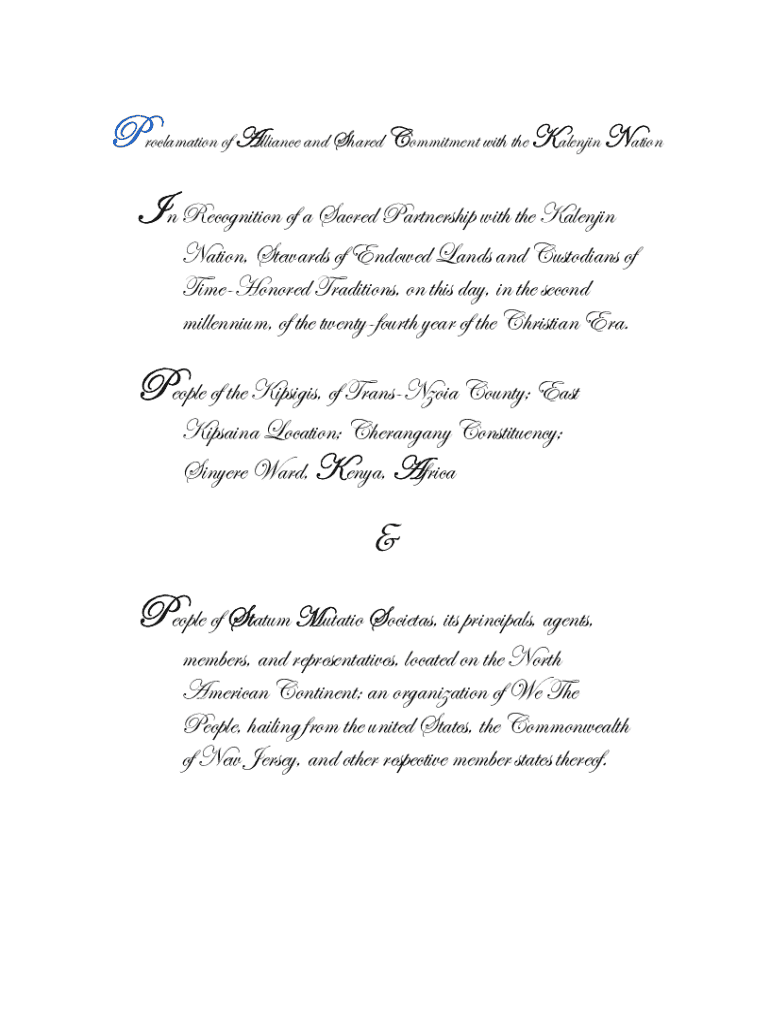 Proclamation of Alliance and Shared Commitment with the Kalenjin Nation
In Recognition of a Sacred Partnership with the Kalenjin
Nation, Stewards of Endowed Lands and Custodians of
Time-Honored Traditions, on this day, in the second
millennium, of the twenty-fourth year of the Christian Era.
People of the Kipsigis, of Trans-Nzoia County; East
Kipsaina Location; Cherangany Constituency;
Sinyere Ward, Kenya, Africa
&
People of Statum Mutatio Societas, its principals, agents,
members, and representatives, located on the North
American Continent; an organization of We The
People, hailing from the united States, the Commonwealth
of New Jersey, and other respective member states thereof.